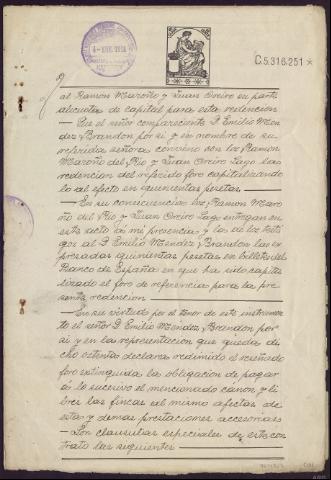 C5.316.251*
y
al Ramon Maroño y Juan Oreiro su parte
alicuota de capital para esta redencion
Que el señor compareciente D. Emilio Men
dez y Brandon por si y en nombre de su
referida señora conviene con los Ramon
Maroño del Rio y Juan Oreiro Lago las
redencion del repetido foro capitalizando
lo al efecto en quinientas pesetas
En su consecuencia los Ramon Maro
ño del Rio y Juan Oreiro Lago entregan en
este acto (a mi presencia y la de los testi
gos al D. Emilio Mendez y Brandon las ex
presadas quinientas pesetas en billetes del
Banco de España en que ha sido capita
lizado el foro de referencia para la pre
sente redencion
En su virtud por el tenor de este instrumen
to el señor D. Emilio Mendez y Brandon por
si y en la representacion que queda di
cho ostenta declara redimido el reseñado
foro extinguida la obligacion de pagar
se lo sucesivo el mencionado cánon y li
bres las fincas al mismo afectas de
estas y demas prestaciones accesorias
Son clausulas especiales de esta con
trato las siguientes